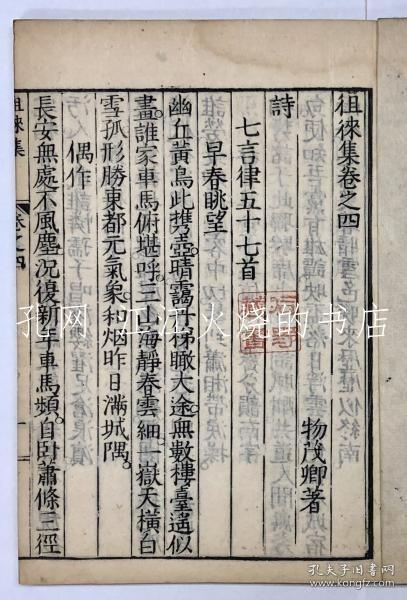 徂徠集卷之四
物茂卿著
詩
七言律五十七首
早春眺望
幽丘黃鳥此携壺晴靄丹梯瞰大途無數樓臺遙似
畫誰家車馬俯堪呼三山海靜春雲細一嶽天橫白
雪孤形勝東都元氣象和烟昨日滿城隅
偶作
長安無處不風塵況復新年車馬頻自卧蕭條三徑
徂徠集
卷之四
孔网 江江火烧的书店
孔夫子旧书网
www.kongfz.com